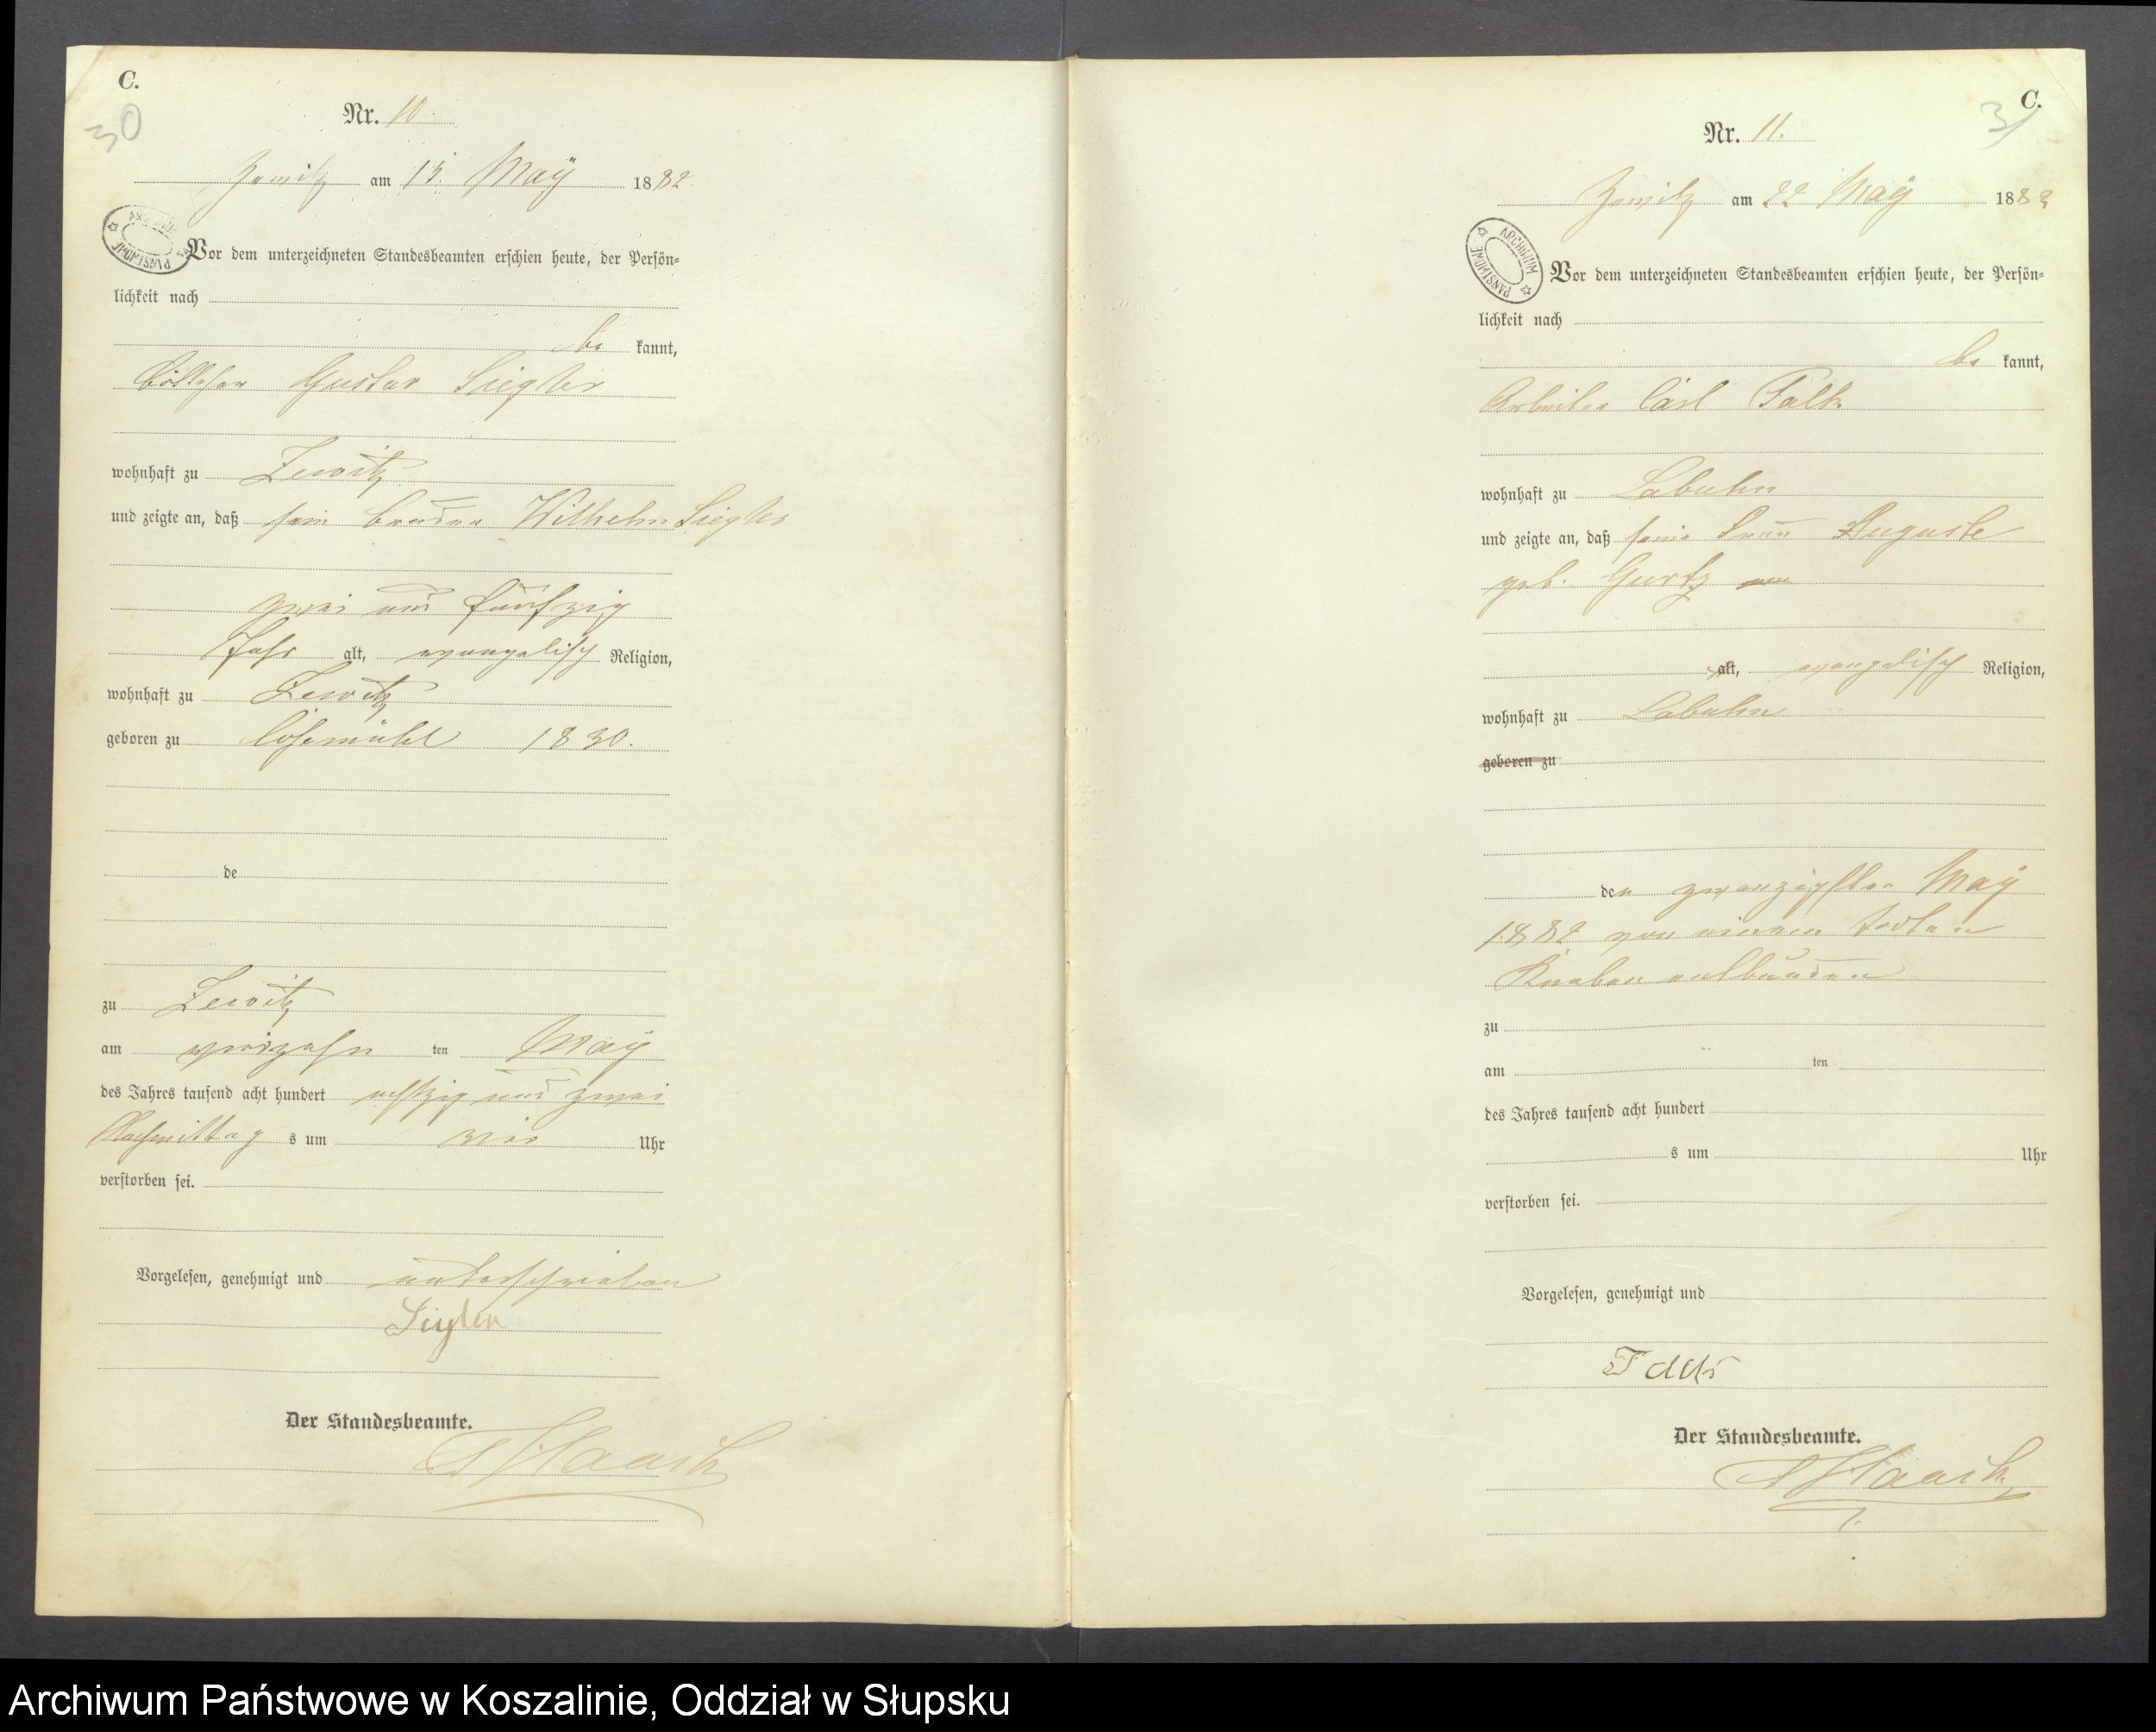 C.
30
Nr. 10.
am 15. May 1882.
Vor dem unterzeichneten Standesbeamten erschien heute, der Persön=
lichkeit nach
be kannt,
Gustav Siegler
wohnhaft zu Zewitz
und zeigte an, daß sein Bruder Wilhelm Siegler
zwei und fünfzig
Jahr alt, evangelisch Religion,
wohnhaft zu Zewitz
geboren zu 1830.
de
zu Zewitz
am vierzehn ten May
des Jahres tausend acht hundert achtzig und zwei
Nachmittag s um Uhr
verstorben sei.
Vorgelesen, genehmigt und unterschrieben
Siegler
Der Standesbeamte.
Haack
C.
31
Nr. 11.
am 22 May 1882
Vor dem unterzeichneten Standesbeamten erschien heute, der Persön=
lichkeit nach
be kannt,
Arbeiter Carl Falk
wohnhaft zu Labuhn
und zeigte an, daß seine Frau Auguste
geb. Gurtz
alt, evangelisch Religion,
wohnhaft zu Labuhn
geboren zu
den zwanzigsten May
1882 von einem todten
Knaben entbunden
zu
am ten
des Jahres tausend acht hundert
s um Uhr
verstorben sei.
Vorgelesen, genehmigt und
Falk
Der Standesbeamte.
Haack
ARCHIWUM PAŃSTWOWE
Archiwum Państwowe w Koszalinie, Oddział w Słupsku